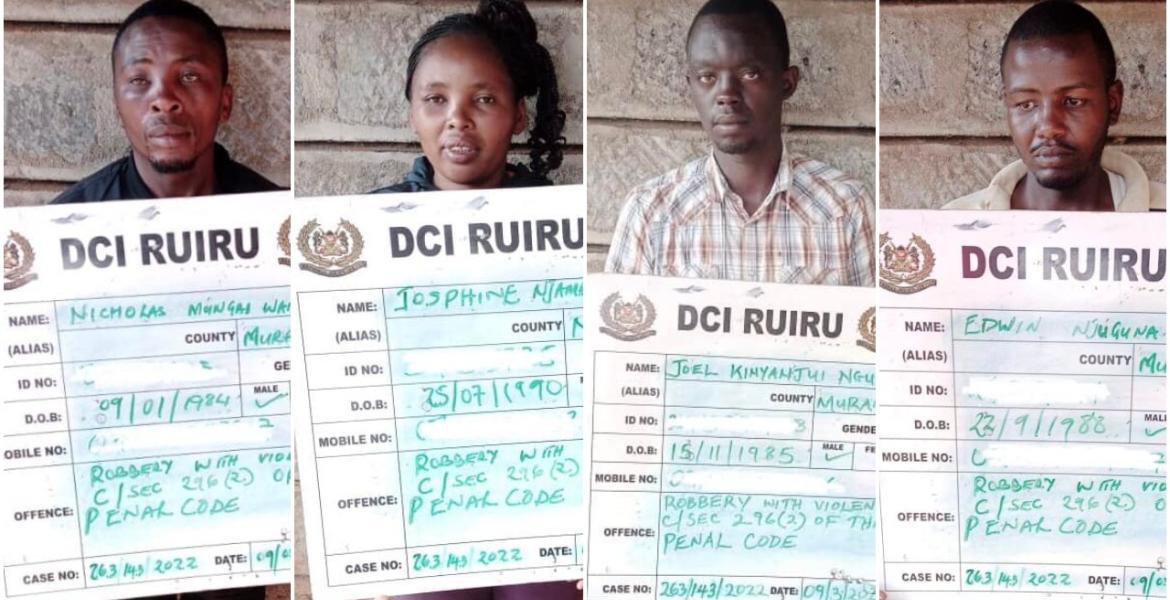 DCI RUIRU
NAME: NICHOLAS MUNGAI
(ALIAS) COUNTY
ID NO:
D.O.B: 09/01/1984 MALE ✓
OBILE NO:
ROBBERY WITH
C/SEC 296(2) OF
OFFENCE: PENAL CODE
CASE NO: 263/143/2022 DATE:
DCI RUIRU
NAME: JOSPHINE
(ALIAS) COUNTY
ID NO:
D.O.B: 25/07/1990
MOBILE NO:
ROBBERY WITH
C/SEC 296(2)
OFFENCE: PENAL CODE
CASE NO: 263/143/2022 DATE:
DCI RUIRU
NAME: JOEL KINYANJUI
(ALIAS) COUNTY
ID NO: GENDE
D.O.B: 15/11/1985 MALE ✓ FE
MOBILE NO:
ROBBERY WITH VIOLEN
C/SEC 296(2) OF TH
OFFENCE: PENAL CODE
CASE NO: 263/143/2022 DATE: 09/3/202
DCI RUIRU
NAME: EDWIN NJUGUNA
(ALIAS) COUNTY
ID NO:
D.O.B: 22/9/1988 MAL ✓
MOBILE NO:
ROBBERY WITH VIO
C/SEC 296(2) O
OFFENCE: PENAL CODE
CASE NO: 263/143/2022 DATE: